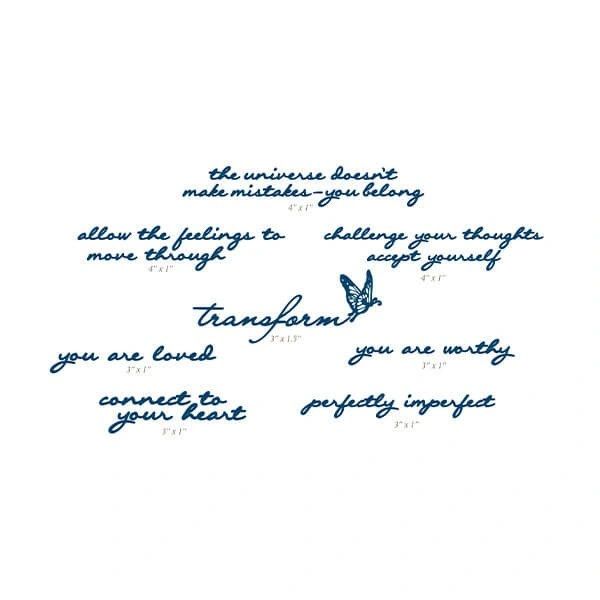 the universe doesn't
make mistakes-you belong
4" x 1"
allow the feelings to
move through
4" x 1"
challenge your thoughts
accept yourself
4" x 1"
transform
3" x 1.5"
you are loved
3" x 1"
you are worthy
3" x 1"
connect to
your heart
3" x 1"
perfectly imperfect
3" x 1"